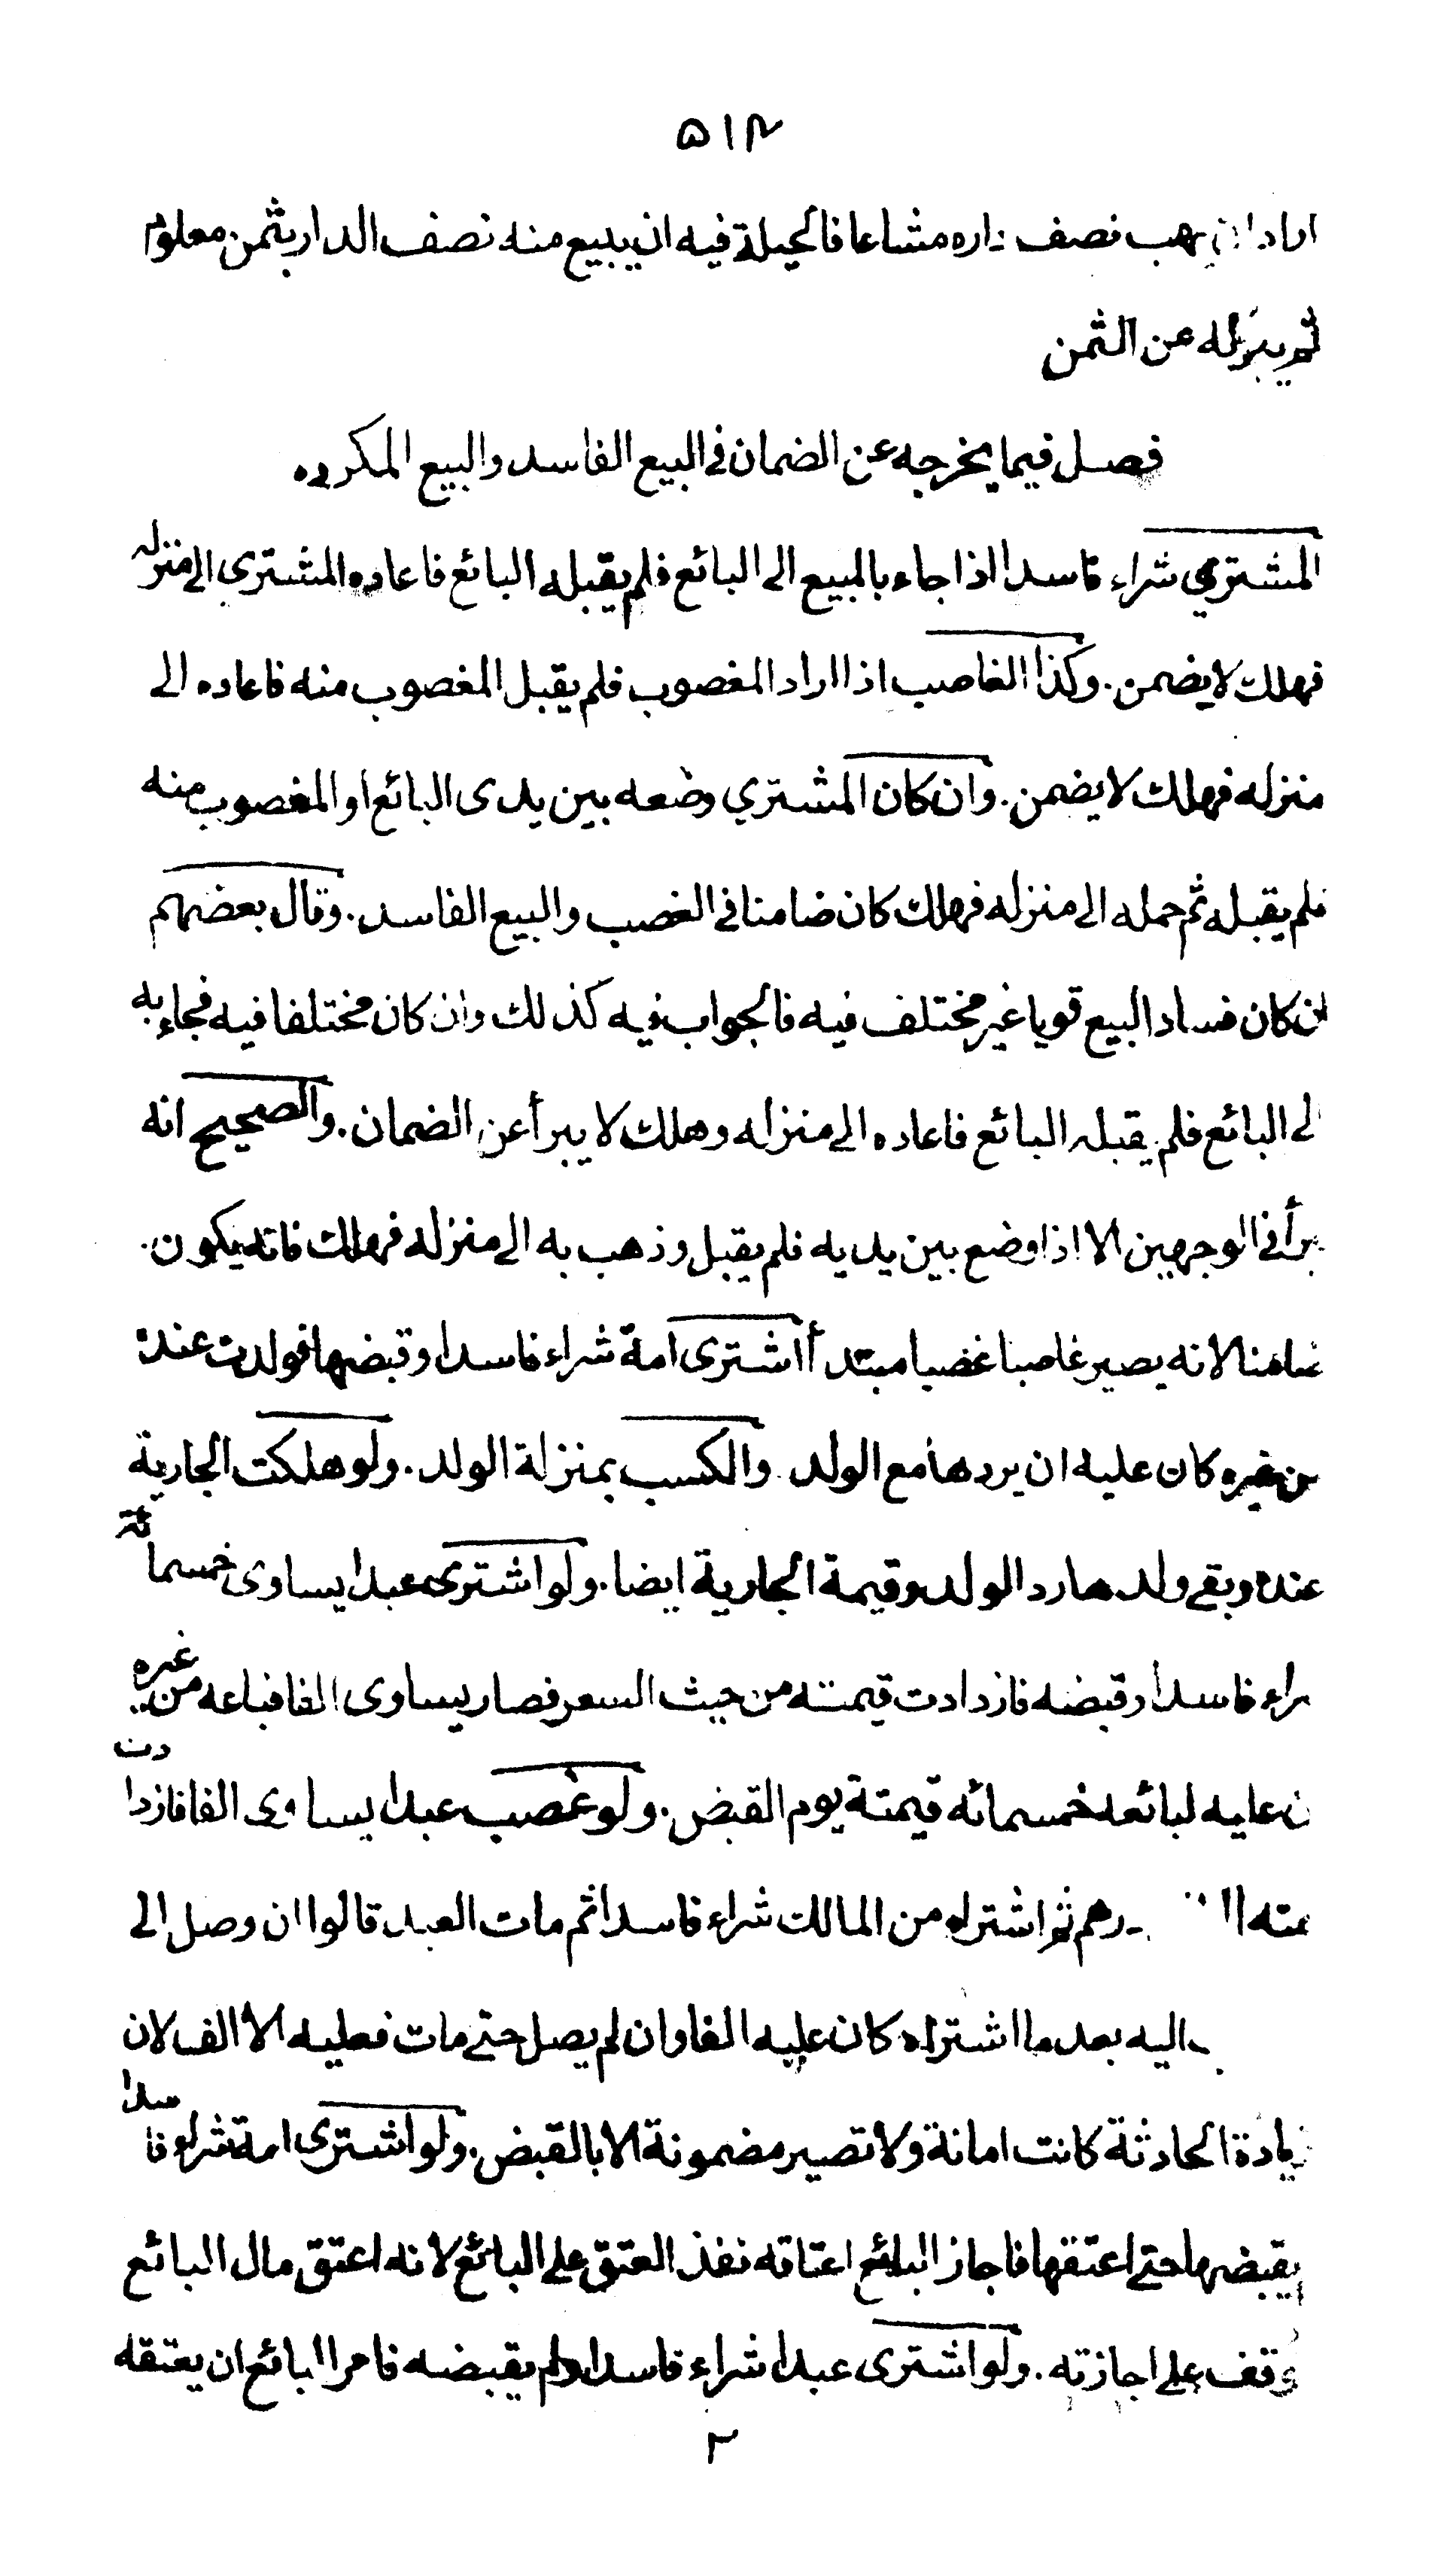 ٥١٢
اراد ان يهب نصف داره مشاعا فالحيلة فيه ان يبيع منه نصف الدار بثمن معلوم
ثم يبرئه عن الثمن
فصل فيما يخرجه عن الضمان في البيع الفاسد والبيع المكروه
المشتري شراء فاسدا اذا جاء بالمبيع الى البائع فلم يقبله البائع فاعاده المشتري الى منزله
فهلك لا يضمن. وكذا الغاصب اذا اراد المغصوب فلم يقبل المغصوب منه فاعاده الى
منزله فهلك لا يضمن. وان كان المشتري وضعه بين يدى البائع او المغصوب منه
فلم يقبله ثم حمله الى منزله فهلك كان ضامنا في الغصب والبيع الفاسد. وقال بعضهم
ان كان فساد البيع قويا غير مختلف فيه فالجواب فيه كذلك وان كان مختلفا فيه فجاء به
الى البائع فلم يقبله البائع فاعاده الى منزله وهلك لا يبرأ عن الضمان. والصحيح انه
يبرأ في الوجهين الا اذا وضع بين يديه فلم يقبل وذهب به الى منزله فهلك فانه يكون.
ضامنا لانه يصير غاصبا غصبا مبتدأ اشترى امة شراء فاسدا وقبضها فولدت عنده
من غيره كان عليه ان يردها مع الولد. والكسب بمنزلة الولد. ولو هلكت الجارية
عنده وبقي ولدها رد الولد وقيمة الجارية ايضا. ولو اشترى عبدا يساوى خمسمائة
شراء فاسدا وقبضه فازدادت قيمته من حيث السعر فصار يساوى الفا فباعه من غيره
ن عليه لبائعه خمسمائه قيمتة يوم القبض. ولو غصب عبدا يساوى الفا فازدادت
قيمته درهم ثم اشتراه من المالك شراء فاسدا ثم مات العبد قالوا ان وصل الى
اليه بعد ما اشتراه كان عليه الفا وان لم يصل حتى مات فعليه الا الف لان
زيادة الحادثة كانت امانة ولا تصير مضمونة الا بالقبض. ولو اشترى امة شراء فاسدا
يقبضها حتى اعتقها فاجاز البائع اعتاقه نفذ العتق على البائع لانه اعتق مال البائع
وقف على اجازته. ولو اشترى عبدا شراء فاسدا ولم يقبضه فامر البائع ان يعتقه
٢